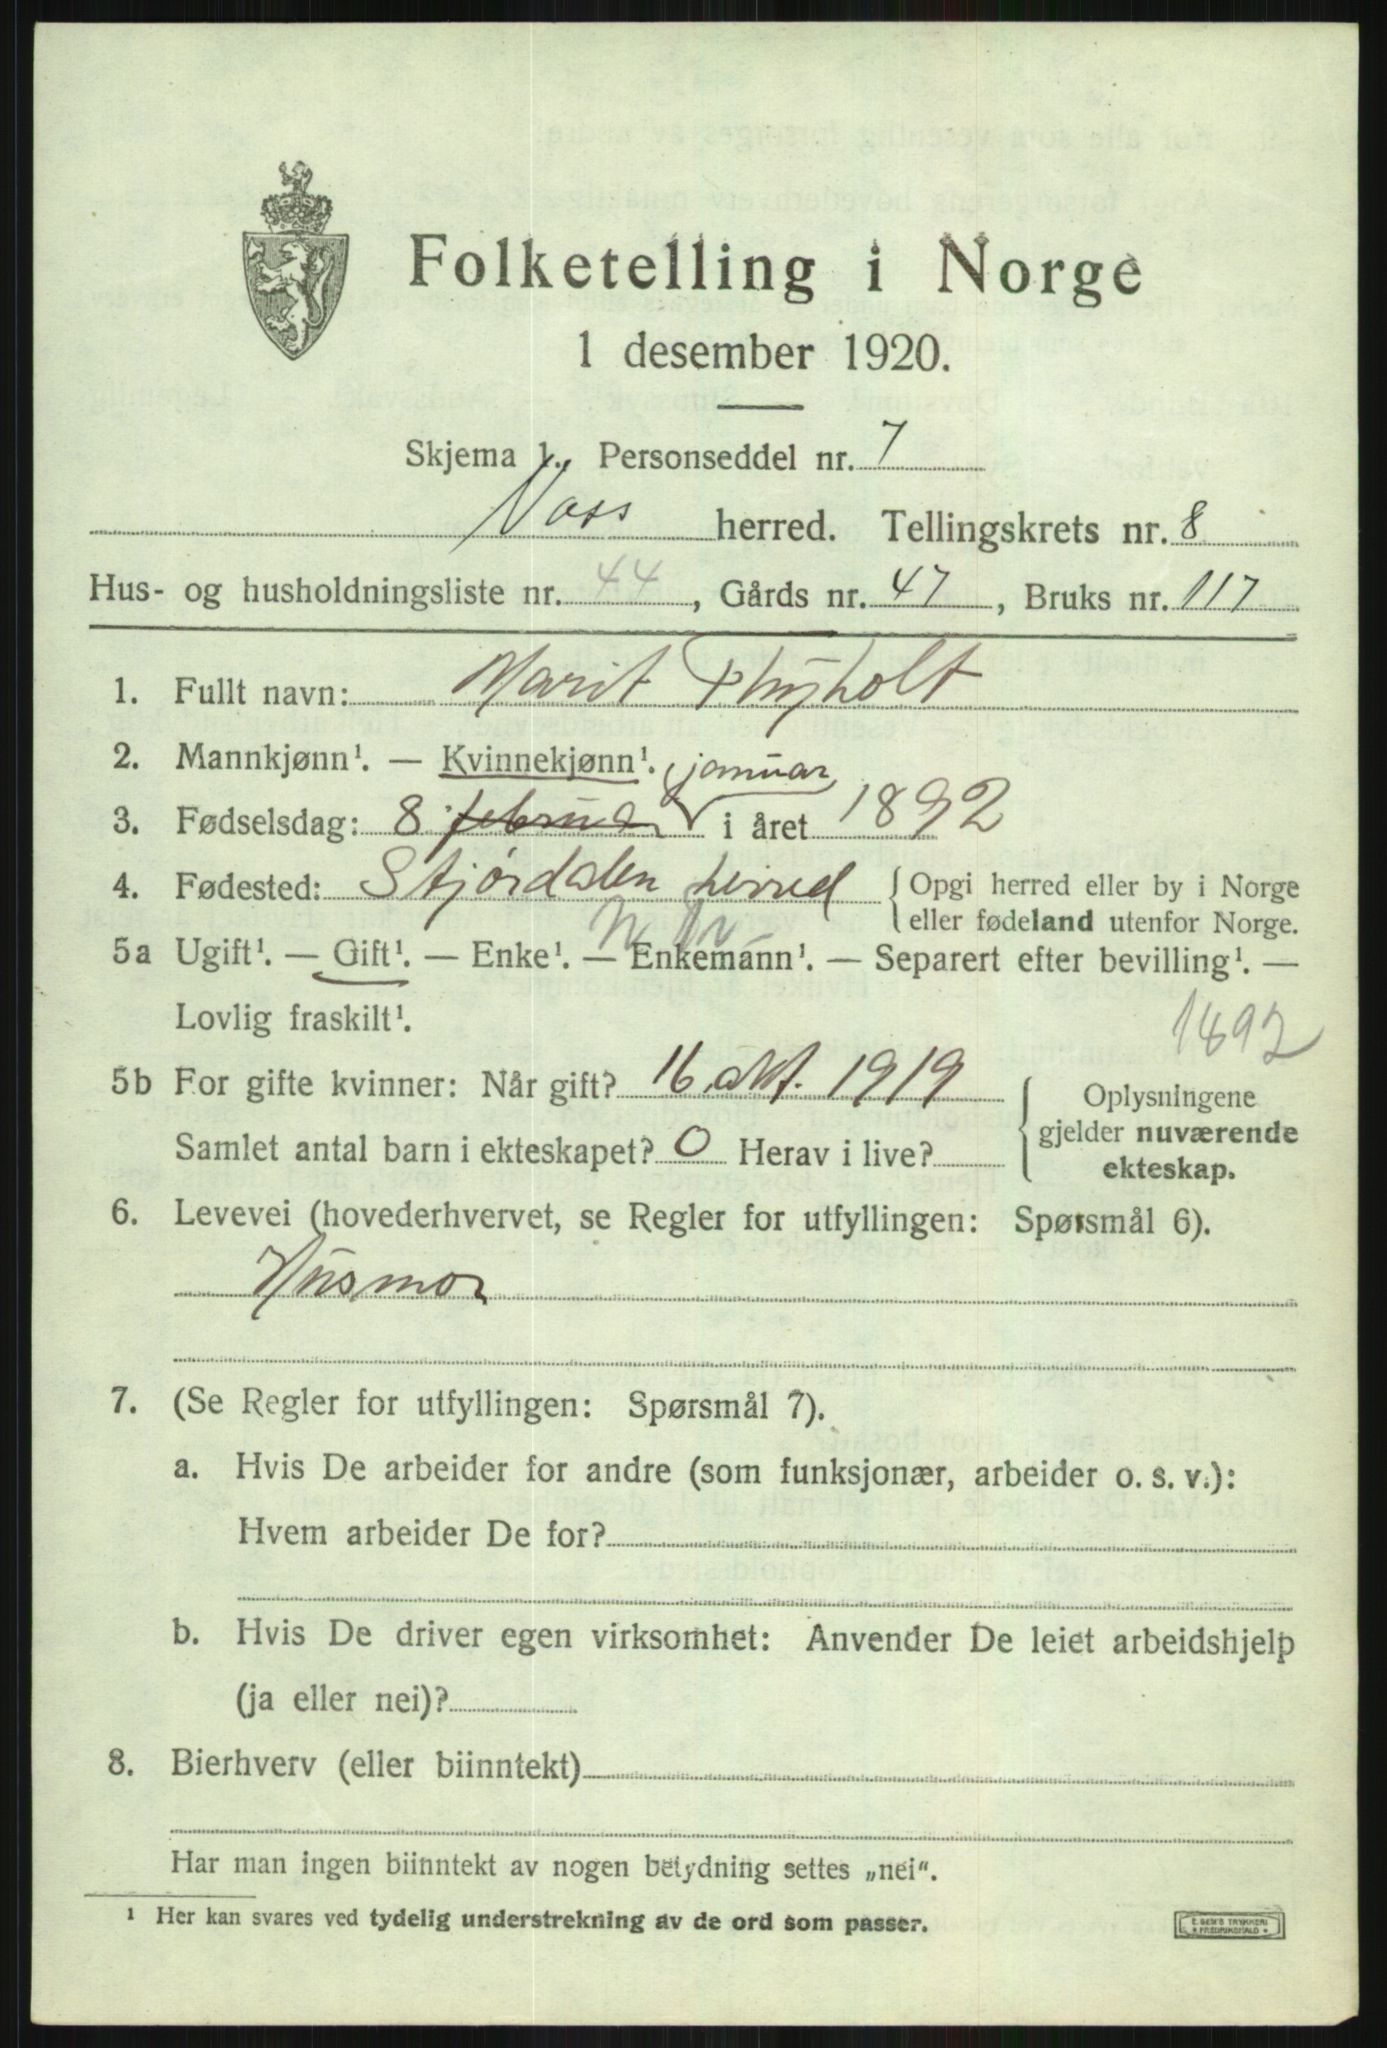 Folketelling i Norge
1 desember 1920.
Skjema 1. Personseddel nr. 7
Voss herred. Tellingskrets nr. 8
Hus- og husholdningsliste nr. 44, Gårds nr. 47, Bruks nr. 117
1. Fullt navn: Marit Thyholt
2. Mannkjønn¹. — Kvinnekjønn¹. januar
3. Fødselsdag: 8 februar i året 1892
4. Fødested: Stjørdalen herred { Opgi herred eller by i Norge
eller fødeland utenfor Norge.
N. Tr.
5a Ugift¹. — Gift¹. — Enke¹. — Enkemann¹. — Separert efter bevilling¹. —
Lovlig fraskilt¹.
1892
5b For gifte kvinner: Når gift? 16. okt. 1919 { Oplysningene
gjelder nuværende
Samlet antal barn i ekteskapet? 0 Herav i live?
ekteskap.
6. Levevei (hovederhvervet, se Regler for utfyllingen: Spørsmål 6).
Husmor
7. (Se Regler for utfyllingen: Spørsmål 7).
a. Hvis De arbeider for andre (som funksjonær, arbeider o. s. v.):
Hvem arbeider De for?
b. Hvis De driver egen virksomhet: Anvender De leiet arbeidshjelp
(ja eller nei)?
8. Bierhverv (eller biinntekt)
Har man ingen biinntekt av nogen betydning settes „nei".
¹ Her kan svares ved tydelig understrekning av de ord som passer.
E. SEM'S TRYKKERI
* FREDRIKSHALD *